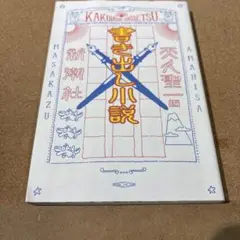 書き出し小説
天久聖一 編
新潮社
MASAKAZU
AMAHISA